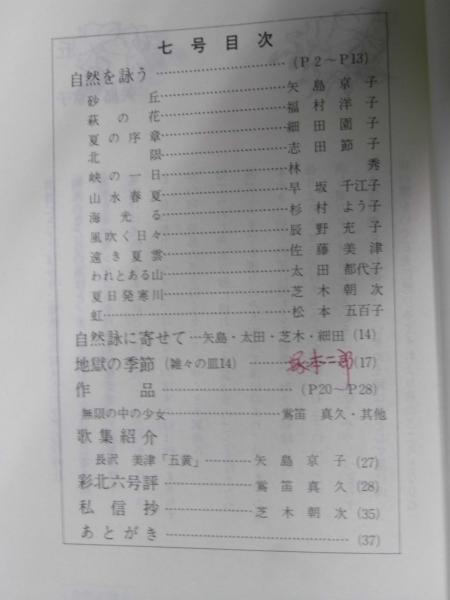 七号目次
自然を詠う……………(P2～P13)
砂丘……………矢島京子
萩の花……………福村洋子
夏の序章……………細田園子
北限……………志田節子
峡の一日……………林秀
山水春夏……………早坂千江子
海光る……………杉村よう子
風吹く日々……………辰野充子
遠き夏雲……………佐藤美津
われとある山……………太田都代子
夏日発寒川……………芝木朝次
虹……………松本五百子
自然詠に寄せて…矢島・太田・芝木・細田(14)
地獄の季節(雑々の皿14)………塚本二郎(17)
作品……………(P20～P28)
無限の中の少女………鴬笛真久・其他
歌集紹介
長沢美津「五黄」………矢島京子(27)
彩北六号評………鴬笛真久(28)
私信抄………芝木朝次(35)
あとがき……………(37)